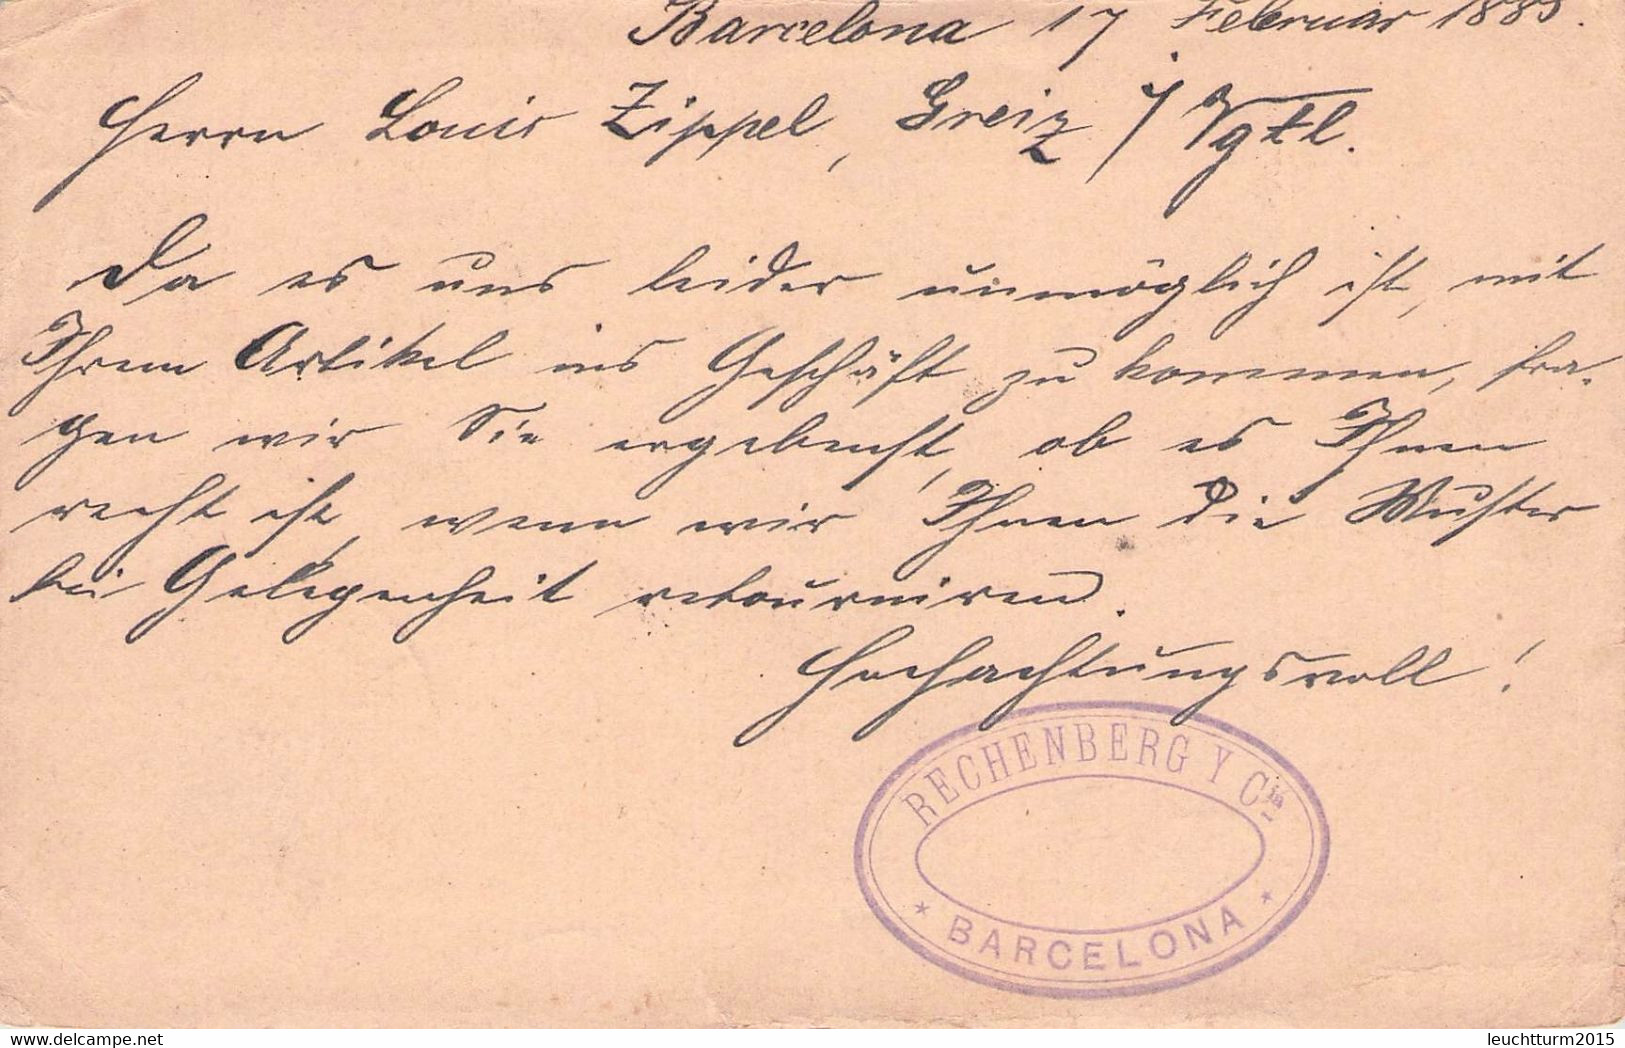 Barcelona 17 Februar 1885.
Herrn Louis Zippel, Greiz i/Vgtl.
Da es uns leider unmöglich ist, mit
Ihrem Artikel ins Geschäft zu kommen, fra-
gen wir Sie ergebenst, ob es Ihnen
recht ist, wenn wir Ihnen die Muster
bei Gelegenheit retourniren.
Hochachtungsvoll!
RECHENBERG Y Cia
* BARCELONA *
www.delcampe.net
leuchtturm2015